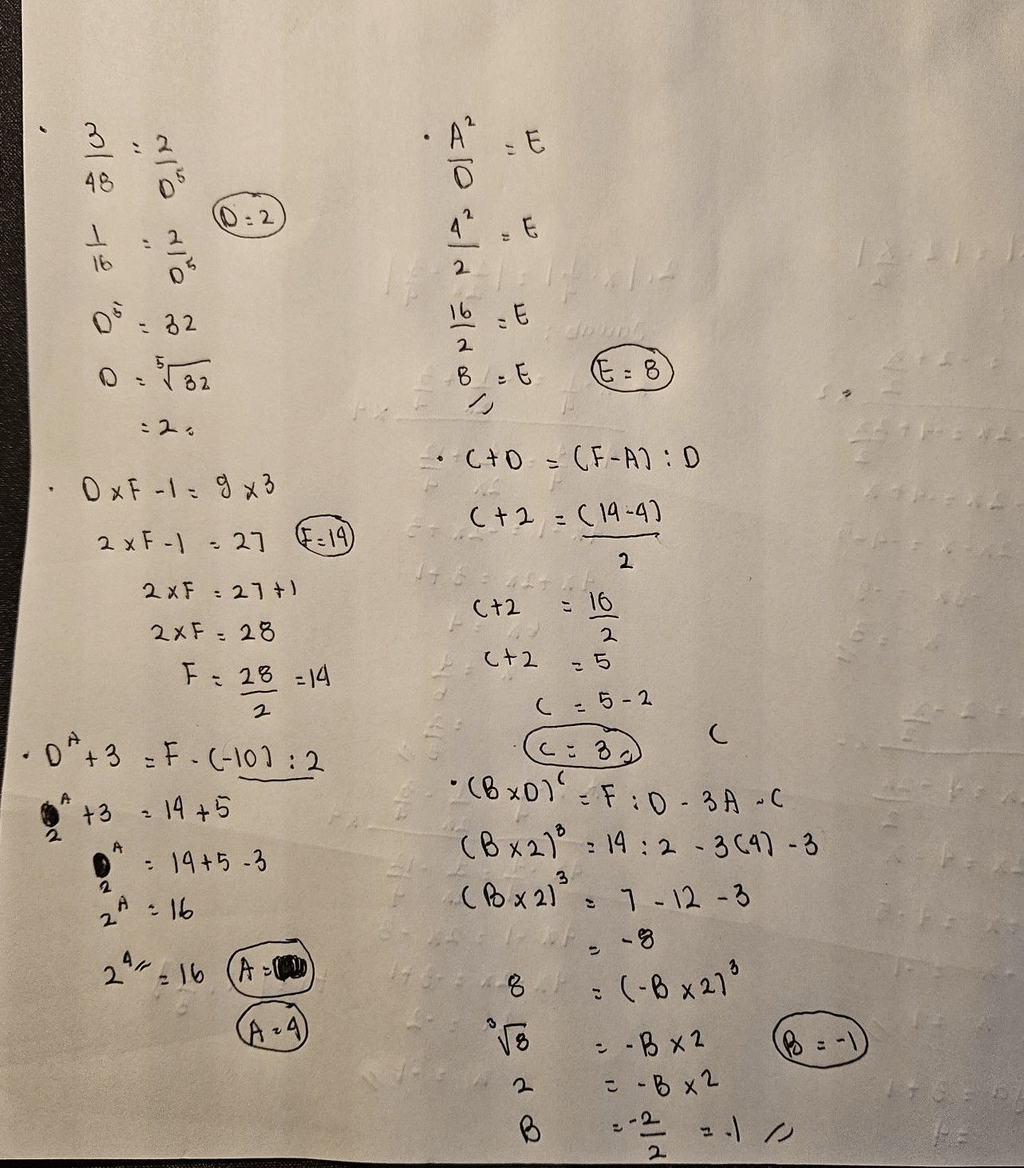 · 3/48 = 2/D⁵
D = 2
1/16 = 2/D⁵
D⁵ = 32
D = ⁵√32
= 2
· D x F - 1 = 9 x 3
2 x F - 1 = 27
F = 14
2 x F = 27 + 1
2 x F = 28
F = 28/2 = 14
· Dᴬ + 3 = F - (-10) : 2
2ᴬ + 3 = 14 + 5
2ᴬ = 14 + 5 - 3
2ᴬ = 16
2⁴ = 16
A =
A = 4
· A²/D = E
4²/2 = E
16/2 = E
8 = E
E = 8
· C + D = (F - A) : D
C + 2 = (14 - 4)/2
C + 2 = 10/2
C + 2 = 5
C = 5 - 2
C = 3
C
· (B x D)ᶜ = F : D - 3A - C
(B x 2)³ = 14 : 2 - 3(4) - 3
(B x 2)³ = 7 - 12 - 3
= -8
8 = (-B x 2)³
³√8 = -B x 2
B = -1
2 = -B x 2
B = -2/2 = -1 //